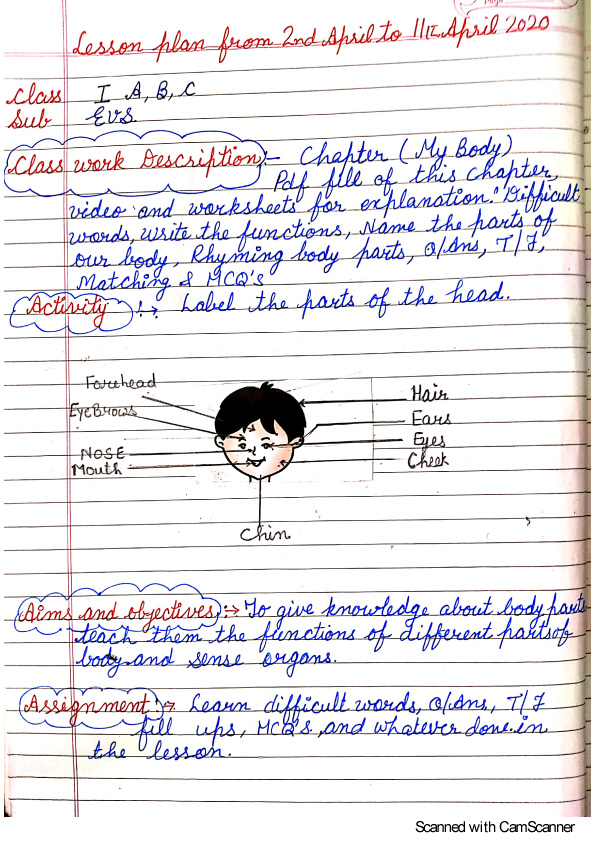 Lesson plan from 2nd April to 11th April 2020
Class I A, B, C
Sub EVS
Class work Description :- Chapter (My Body)
Pdf file of this chapter,
video and worksheets for explanation. Difficult
words, write the functions, Name the parts of
our body, Rhyming body parts, Q/Ans, T/F,
Matching & MCQ's
Activity :→ Label the parts of the head.
Forehead
EyeBrows
NOSE
Mouth
Hair
Ears
Eyes
Cheek
Chin
Aims and objectives :→ To give knowledge about body parts
teach them the functions of different parts of
body and sense organs.
Assignment :→ Learn difficult words, Q/Ans, T/F
fill ups, MCQ's, and whatever done in
the lesson.
Scanned with CamScanner